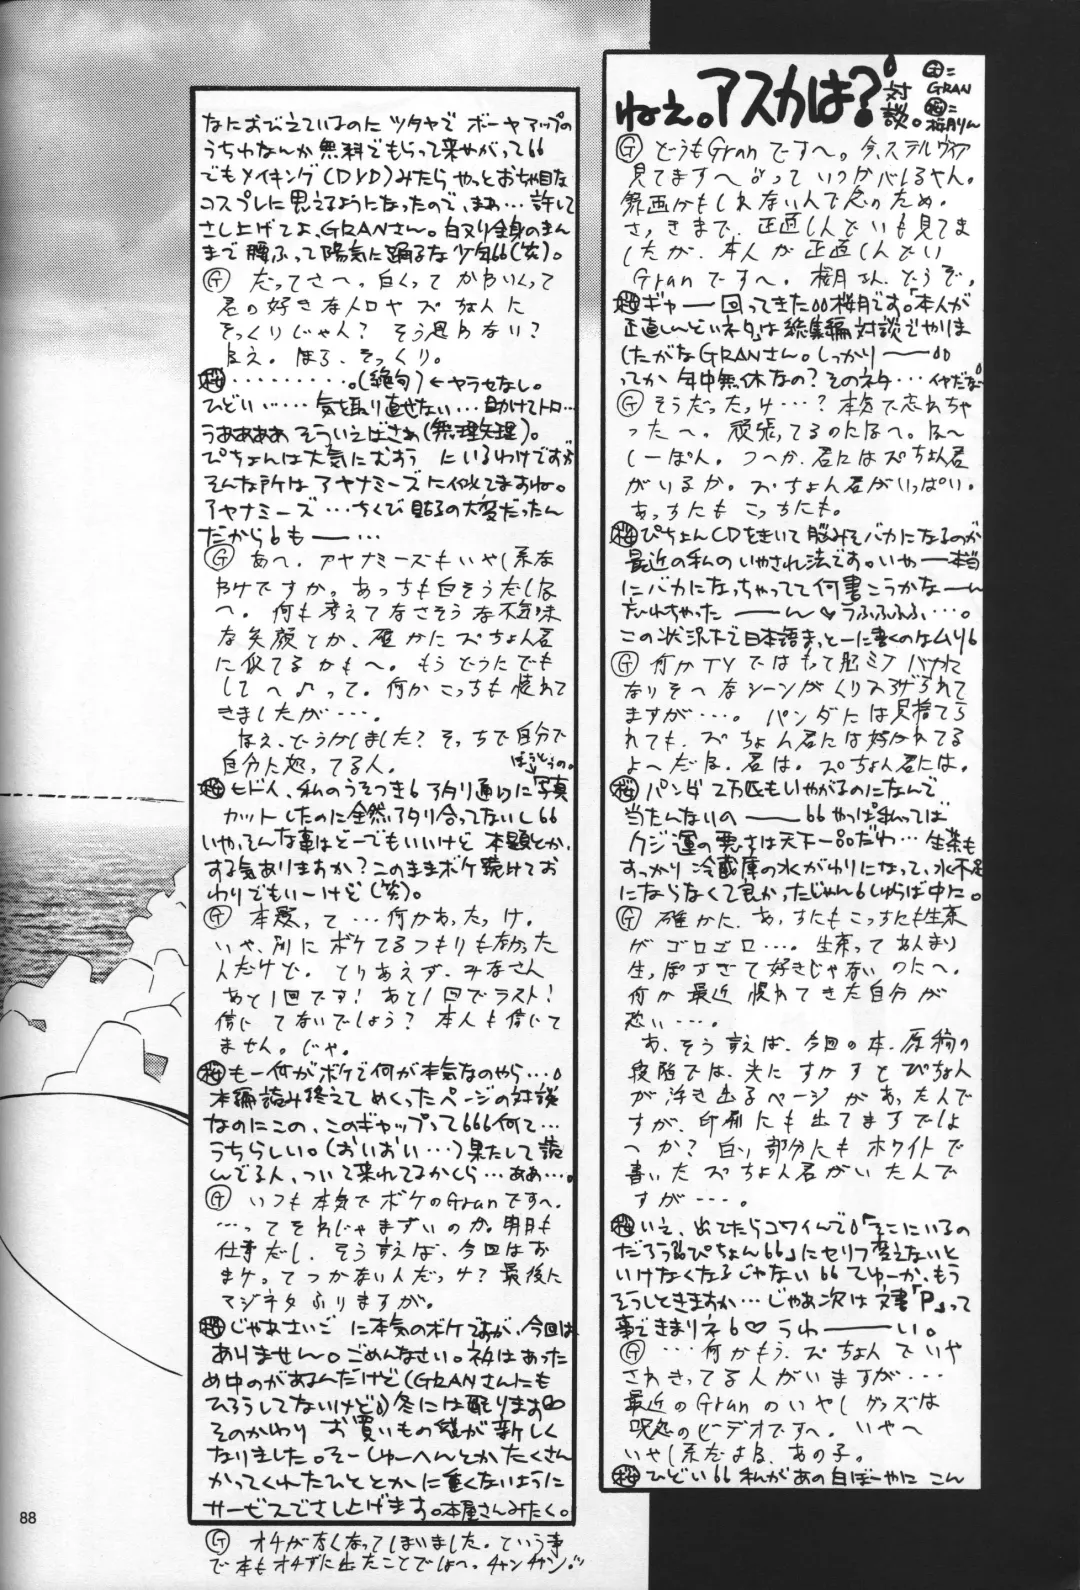 ねぇ。アスカは?対談。
G=GRAN
桜=桜月りん
G どうもGranですへ。今、ステルヴィア
見てますへ よって いつかバレるやん。
さっきまで、正直しんどいも見てま
したが、本人が正直しんどい
Granですへ。桜月さん、どうぞ。
桜 ギャー 回ってきた 桜月です。「本人が
正直しんどいネタ」は総集編対談でやりま
したがなGRANさん。しっかりーー
ってか年中無休なの?そのネタ…イヤだな
G そうだったっけ…?本気で忘れちゃ
ったへ。頑張ってるのになへ。なへ
しーぽん。つへか、君にはぴちょん君
がいるか。ぴちょん君がいっぱい。
あっちにもこっちにも。
桜 ぴちょんCDをきいて脳みそバカになるのが
最近の私のいやされ法です。いやー本当
にバカになっちゃってて何書こうかなーーん
忘れちゃったーーーん♡うふふふふ…。
この状況下で日本語まっとーに書くのはムリ
G 何かTVではもって脳ミソバカに
なりそへなシーンがくりひろげられて
ますが…。パンダには見捨てら
れても、ぴちょん君には好かれてる
よへだな、君は。ぴちょん君には。
桜 パンダ2万匹もいやがるのになんで
当たんないのーーーやっぱ私ってば
クジ運の悪さは天下一品だわ…生茶も
すっかり冷蔵庫の水がわりになって、水不足
にならなくて良かったじゃんしゅらば中に。
G 確かに、あっちにもこっちにも生茶
がゴロゴロ…。生茶ってあんまり
生っぽすぎて好きじゃないのにへ。
何か最近慣れてきた自分が
恐い…。
あ、そう言えば、今回の本、原稿の
段階では、光にすかすとぴちょん
が浮き出るページがあったんで
すが、印刷にも出てますでしょ
へか?白い部分にもホワイトで
書いたぴちょん君がいたんで
すが…。
桜 いえ、出てたらコワイんで「そこにいるの
だろう ぴちょん」にセリフ変えないと
いけなくなるじゃない てゆーか、もう
そうしときますか…じゃあ次は文書「P」って
事できまりネ♡うわーーーい。
G …何かもう、ぴちょんでいや
されきってる人がいますが…
最近のGranのいやしグッズは
呪怨のビデオですへ。いやへ
いやし系だよね、あの子。
桜 ひどい 私があの白ぼーやに こん
なにおびえているのに ツタヤで ボーヤアップの
うちわなんか無料でもらって来やがって
でもメイキング(DVD)みたらやっとおちゃ目な
コスプレに思えるようになったので、まぁ…許して
さし上げてよ、GRANさん。白ヌリ全身のまん
まで腰ふって陽気に踊るな少年(笑)。
G だってさへ、白くってかわいくって
君の好きな人口ヤズなんに
そっくりじゃん?そう思わない?
ねえ。ほら、そっくり。
桜 ………。(絶句)←ヤラセなし。
ひどい……気を取り直せない…助けてトロ…
うああああ そういえばさぁ(無理矢理)。
ぴちょんは大気にむおう にいるわけですが
そんな所はアヤナミーズに似てますね。
アヤナミーズ…ちくび貼るの大変だったん
だからもーー…
G あへ、アヤナミーズもいやし系な
わけですか。あっちも白そうだしな
へ。何も考えてなさそうな不気味
な笑顔とか、確かにぴちょん君
に似てるかもへ。もうどうにでも
してへ♪って。何かこっちも慣れて
きましたが…。
ねえ、どうかしました?そっちで自分で
自分に怒ってる人。
桜 ヒドイ、私のうそつき アタリ通りに写真
カットしたのに全然アタリ合ってないし
いや、そんな事はどーでもいいけど 本題とか、
する気ありますか?このままボケ続けてお
わりでもいーけど(笑)。
G 本題って…何かあったっけ。
いや、別にボケてるつもりもなかった
んだけど。とりあえず、みなさん
あと1回です!あと1回でラスト!
信じてないでしょう?本人も信じて
ません。じゃ。
桜 もー何がボケで何が本気なのやら…
本編読み終えてめくったページの対談
なのにこの、このギャップって何て…
うちらしい。(おいおい…)果たして読
んでる人、ついて来れてるかしら…ああ…。
G いつも本気でボケのGranですへ。
…ってそれじゃまずいのか。明日も
仕事だし、そう言えば、今回はお
まけってつかないんだっけ?最後に
マジネタふりますが。
桜 じゃあさいごに本気のボケですが、今回は
ありません。ごめんなさい。ネタはあった
め中のがあるんだけど(GRANさんにも
ひろうしてないけど)冬には配ります
そのかわり お買いもの袋が新しく
なりました。そーしゅーへんとかたくさん
かってくれたひととかに重くないように
サービスでさし上げます。本屋さんみたく。
G オチがなくなってしまいました。という事
で本もオチずに出たことでしょへ。チャンチャン
88